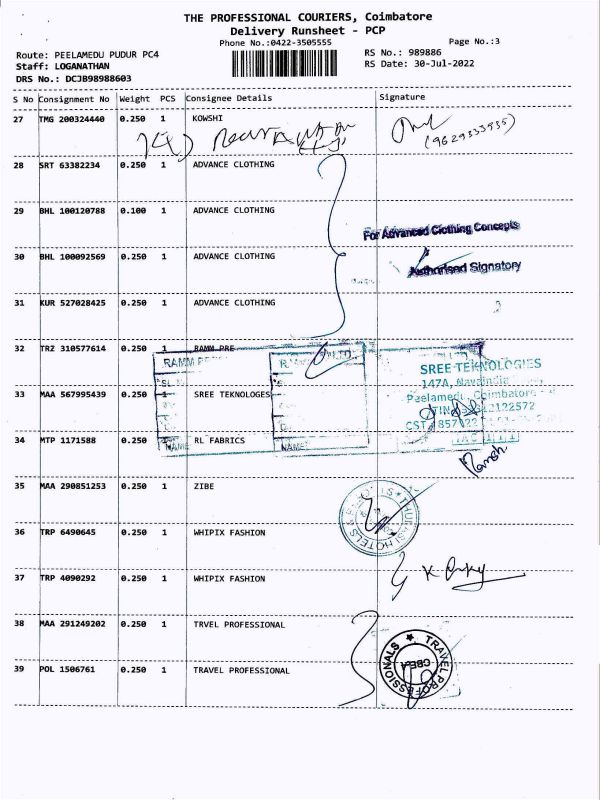 THE PROFESSIONAL COURIERS, Coimbatore
Delivery Runsheet - PCP
Phone No.:0422-3505555
Page No.:3
Route: PEELAMEDU PUDUR PC4
RS No.: 989886
Staff: LOGANATHAN
RS Date: 30-Jul-2022
DRS No.: DCJB98988603
S No Consignment No Weight PCS Consignee Details Signature
27 TMG 200324440 0.250 1 KOWSHI
(9629333935)
28 SRT 63382234 0.250 1 ADVANCE CLOTHING
29 BHL 100120788 0.100 1 ADVANCE CLOTHING
For Advanced Clothing Concepts
30 BHL 100092569 0.250 1 ADVANCE CLOTHING
Authorised Signatory
31 KUR 527028425 0.250 1 ADVANCE CLOTHING
32 TRZ 310577614 0.250 1 RAMM PRE
SREE TEKNOLOGIES
147A, Navaindia
33 MAA 567995439 0.250 1 SREE TEKNOLOGES
Peelamedu, Coimbatore
34 MTP 1171588 0.250 1 RL FABRICS
35 MAA 290851253 0.250 1 ZIBE
36 TRP 6490645 0.250 1 WHIPIX FASHION
37 TRP 4090292 0.250 1 WHIPIX FASHION
38 MAA 291249202 0.250 1 TRVEL PROFESSIONAL
39 POL 1506761 0.250 1 TRAVEL PROFESSIONAL
TRAVEL PROFESSIONALS
CBE-4